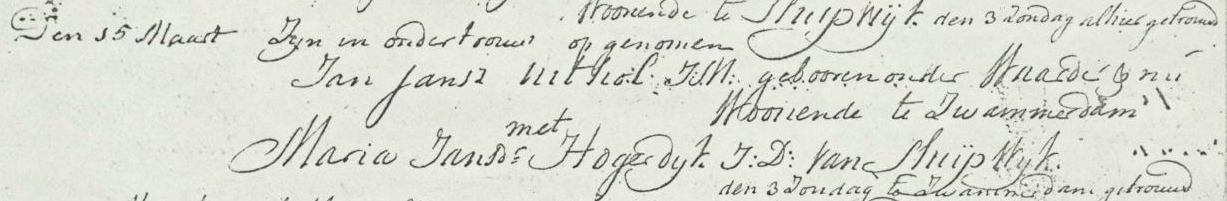 Woonende te Sluipwijk den 3 Zondag alhier getrouwd
Den 15 Maart Zijn in ondertrouw opgenomen
Jan Jansz Uithol J:M: gebooren onder Waarder & nu
Woonende te Zwammerdam
met
Maria Jansdr Hogerdyk J:D: van Sluijpwyk
den 3 Zondag te Zwammerdam getrouwd